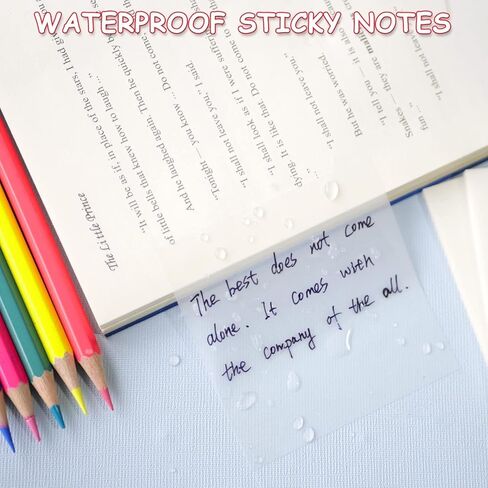 WATERPROOF STICKY NOTES
The Little Prince
"It will be as if, in place of the stars, I had
of little bells that knew how to laugh ..."
And he laughed again. Then he quickly
"Tonight — you know ... Do not come
"I shall not leave you," I said.
"I shall look as if I were
dying. It is like that. Do not come to
"I shall not leave you."
But he was worried.
"I tell you — it is also
Snakes — they are
fun ..."
"I shall not leave
The best does not come
alone. It comes with
the company of the all.